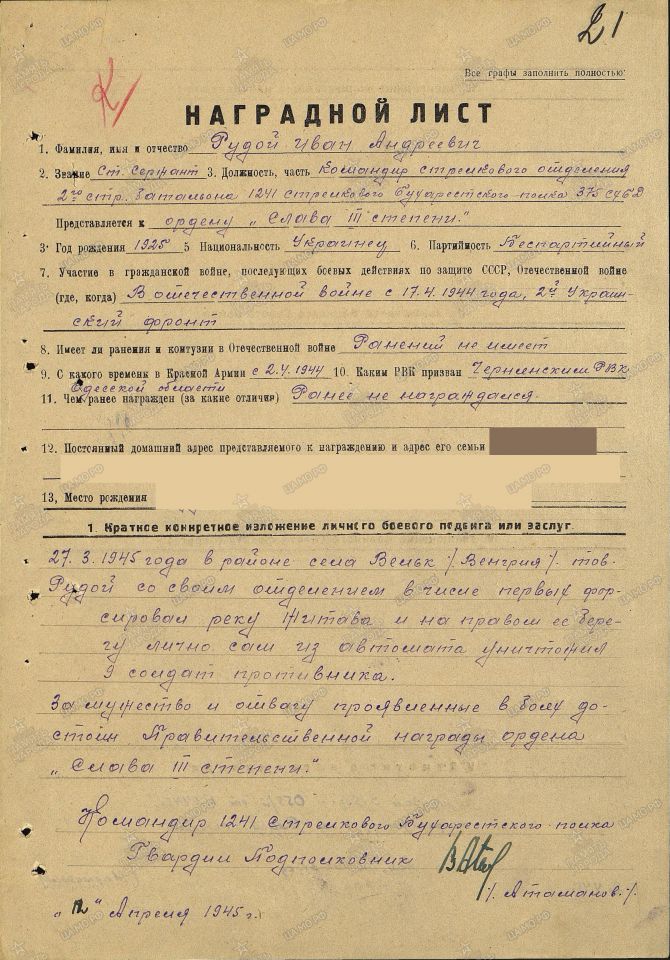 21
Все графы заполнить полностью
НАГРАДНОЙ ЛИСТ
1. Фамилия, имя и отчество Рудой Иван Андреевич
2. Звание Ст. Сержант 3. Должность, часть Командир стрелкового отделения
2го стр. батальона 1241 стрелкового Бухарестского полка 375 СХБД
Представляется к ордену „Слава III степени."
3. Год рождения 1925 5 Национальность Украинец 6. Партийность Беспартийный
7. Участие в гражданской войне, последующих боевых действиях по защите СССР, Отечественной войне
(где, когда) В отечественной войне с 17.4.1944 года, 2й Украин-
ский фронт
8. Имеет ли ранения и контузии в Отечественной войне Ранений не имеет
9. С какого времени в Красной Армии с 2.4.1944 10. Каким РВК призван РВК
Одесской области
11. Чем ранее награжден (за какие отличия) Ранее не награждался.
12. Постоянный домашний адрес представляемого к награждению и адрес его семьи
13, Место рождения
1. Краткое конкретное изложение личного боевого подвига или заслуг
27.3.1945 года в районе села Вельк /Венгрия/. тов.
Рудой со своим отделением в числе первых фор-
сировал реку Житава и на правом ее бере-
гу лично сам из автомата уничтожил
9 солдат противника.
За мужество и отвагу проявленные в бою до-
стоин Правительственной награды ордена
„Слава III степени."
Командир 1241 Стрелкового Бухарестского полка
Гвардии Подполковник
/. Атаманов./.
„12" Апреля 1945 г.